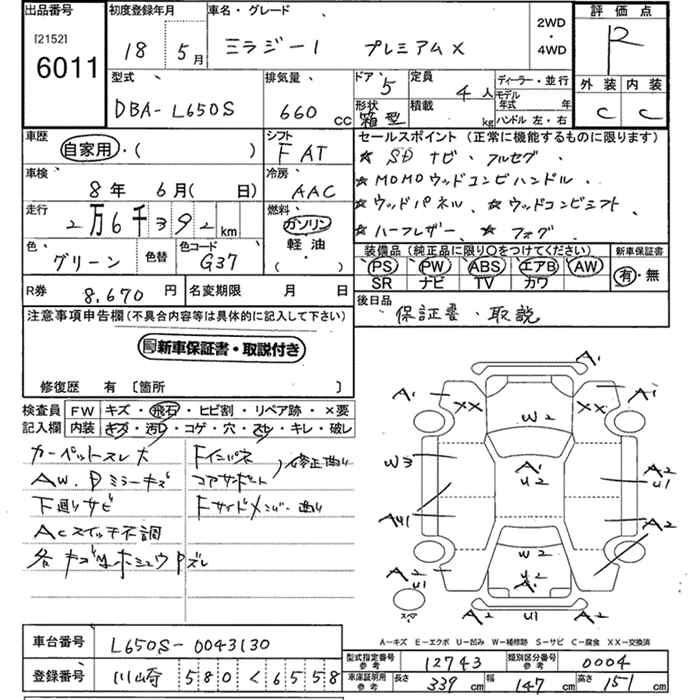 出品番号 初度登録年月 車名・グレード 2WD・4WD 評価点
[2152]
6011 18年 5月 ミラジーノ プレミアムX R
型式 排気量 ドア 5 定員 4人 ディーラー・並行 外装 内装
DBA-L650S 660cc 形状 箱型 積載 kg モデル年式 年 ハンドル 左・右 C C
車歴 シフト セールスポイント(正常に機能するものに限ります)
自家用・( ) FAT ☆ SD ナビ・フルセグ.
車検 冷房 ☆MOMOウッドコンビハンドル.
8年 6月( 日) AAC ☆ウッドパネル. ☆ウッドコンビシフト
走行 燃料 ☆ハーフレザー. ☆フォグ.
2万6千392km ガソリン
色 色替 色コード 軽油・( ) 装備品(純正品に限り○をつけてください) 新車保証書
グリーン G37 PS PW ABS エアB AW 有・無
SR ナビ TV カワ
R券 8,670円 名変期限 月 日 後日品
保証書・取説
注意事項申告欄(不具合内容等は具体的に記入して下さい)
新車保証書・取説付き
修復歴 有 〔箇所 〕
検査員記入欄 FW キズ・飛石・ヒビ割・リペア跡・×要
内装 キズ・汚れ・コゲ・穴・スレ・キレ・破レ
カーペットスレ大 Fインパネ
AW.Dミラーキズ コアサポート 修正曲り
下廻りサビ Fサイドメンバー曲り
ACスイッチ不調
A1
A1 XX XX A1
W2
W3 A1 U2 A2 U1
AU1 A2
W2
A2
A2 U1 A2
A-キズ E-エクボ U-凹み W-補修跡 S-サビ C-腐食 XX-交換済
車台番号 L650S-0043130
型式指定番号 参考 12743 類別区分番号 参考 0004
登録番号 川崎 580 く 6558
車庫証明用 参考 長さ 339cm 幅 147cm 高さ 151cm